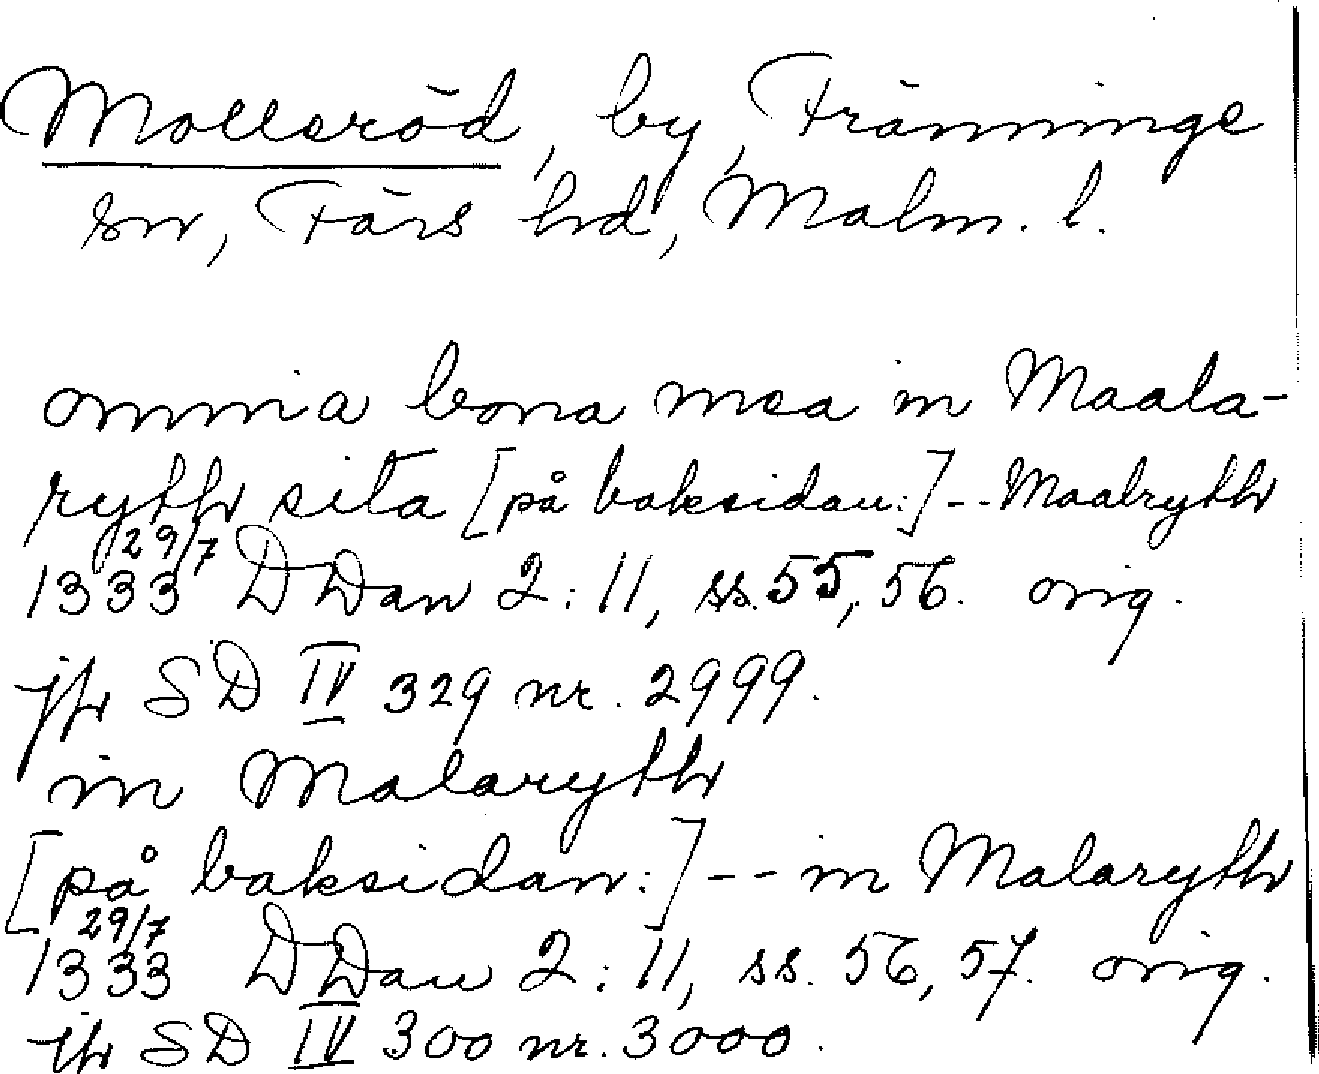 Mollerōd, by, Fränninge
sn, Färs hd, Malm. l.
omnia bona mea in Maala-
ryth sita [på baksidan:] -- Maalryth
29/7
1333 DDan 2:11, ss. 55, 56. orig.
jfr SD IV 329 nr. 2999.
in Malaryth
[på baksidan:] -- in Malaryth
29/7
1333 DDan 2:11, ss. 56, 57. orig.
jfr SD IV 300 nr. 3000.